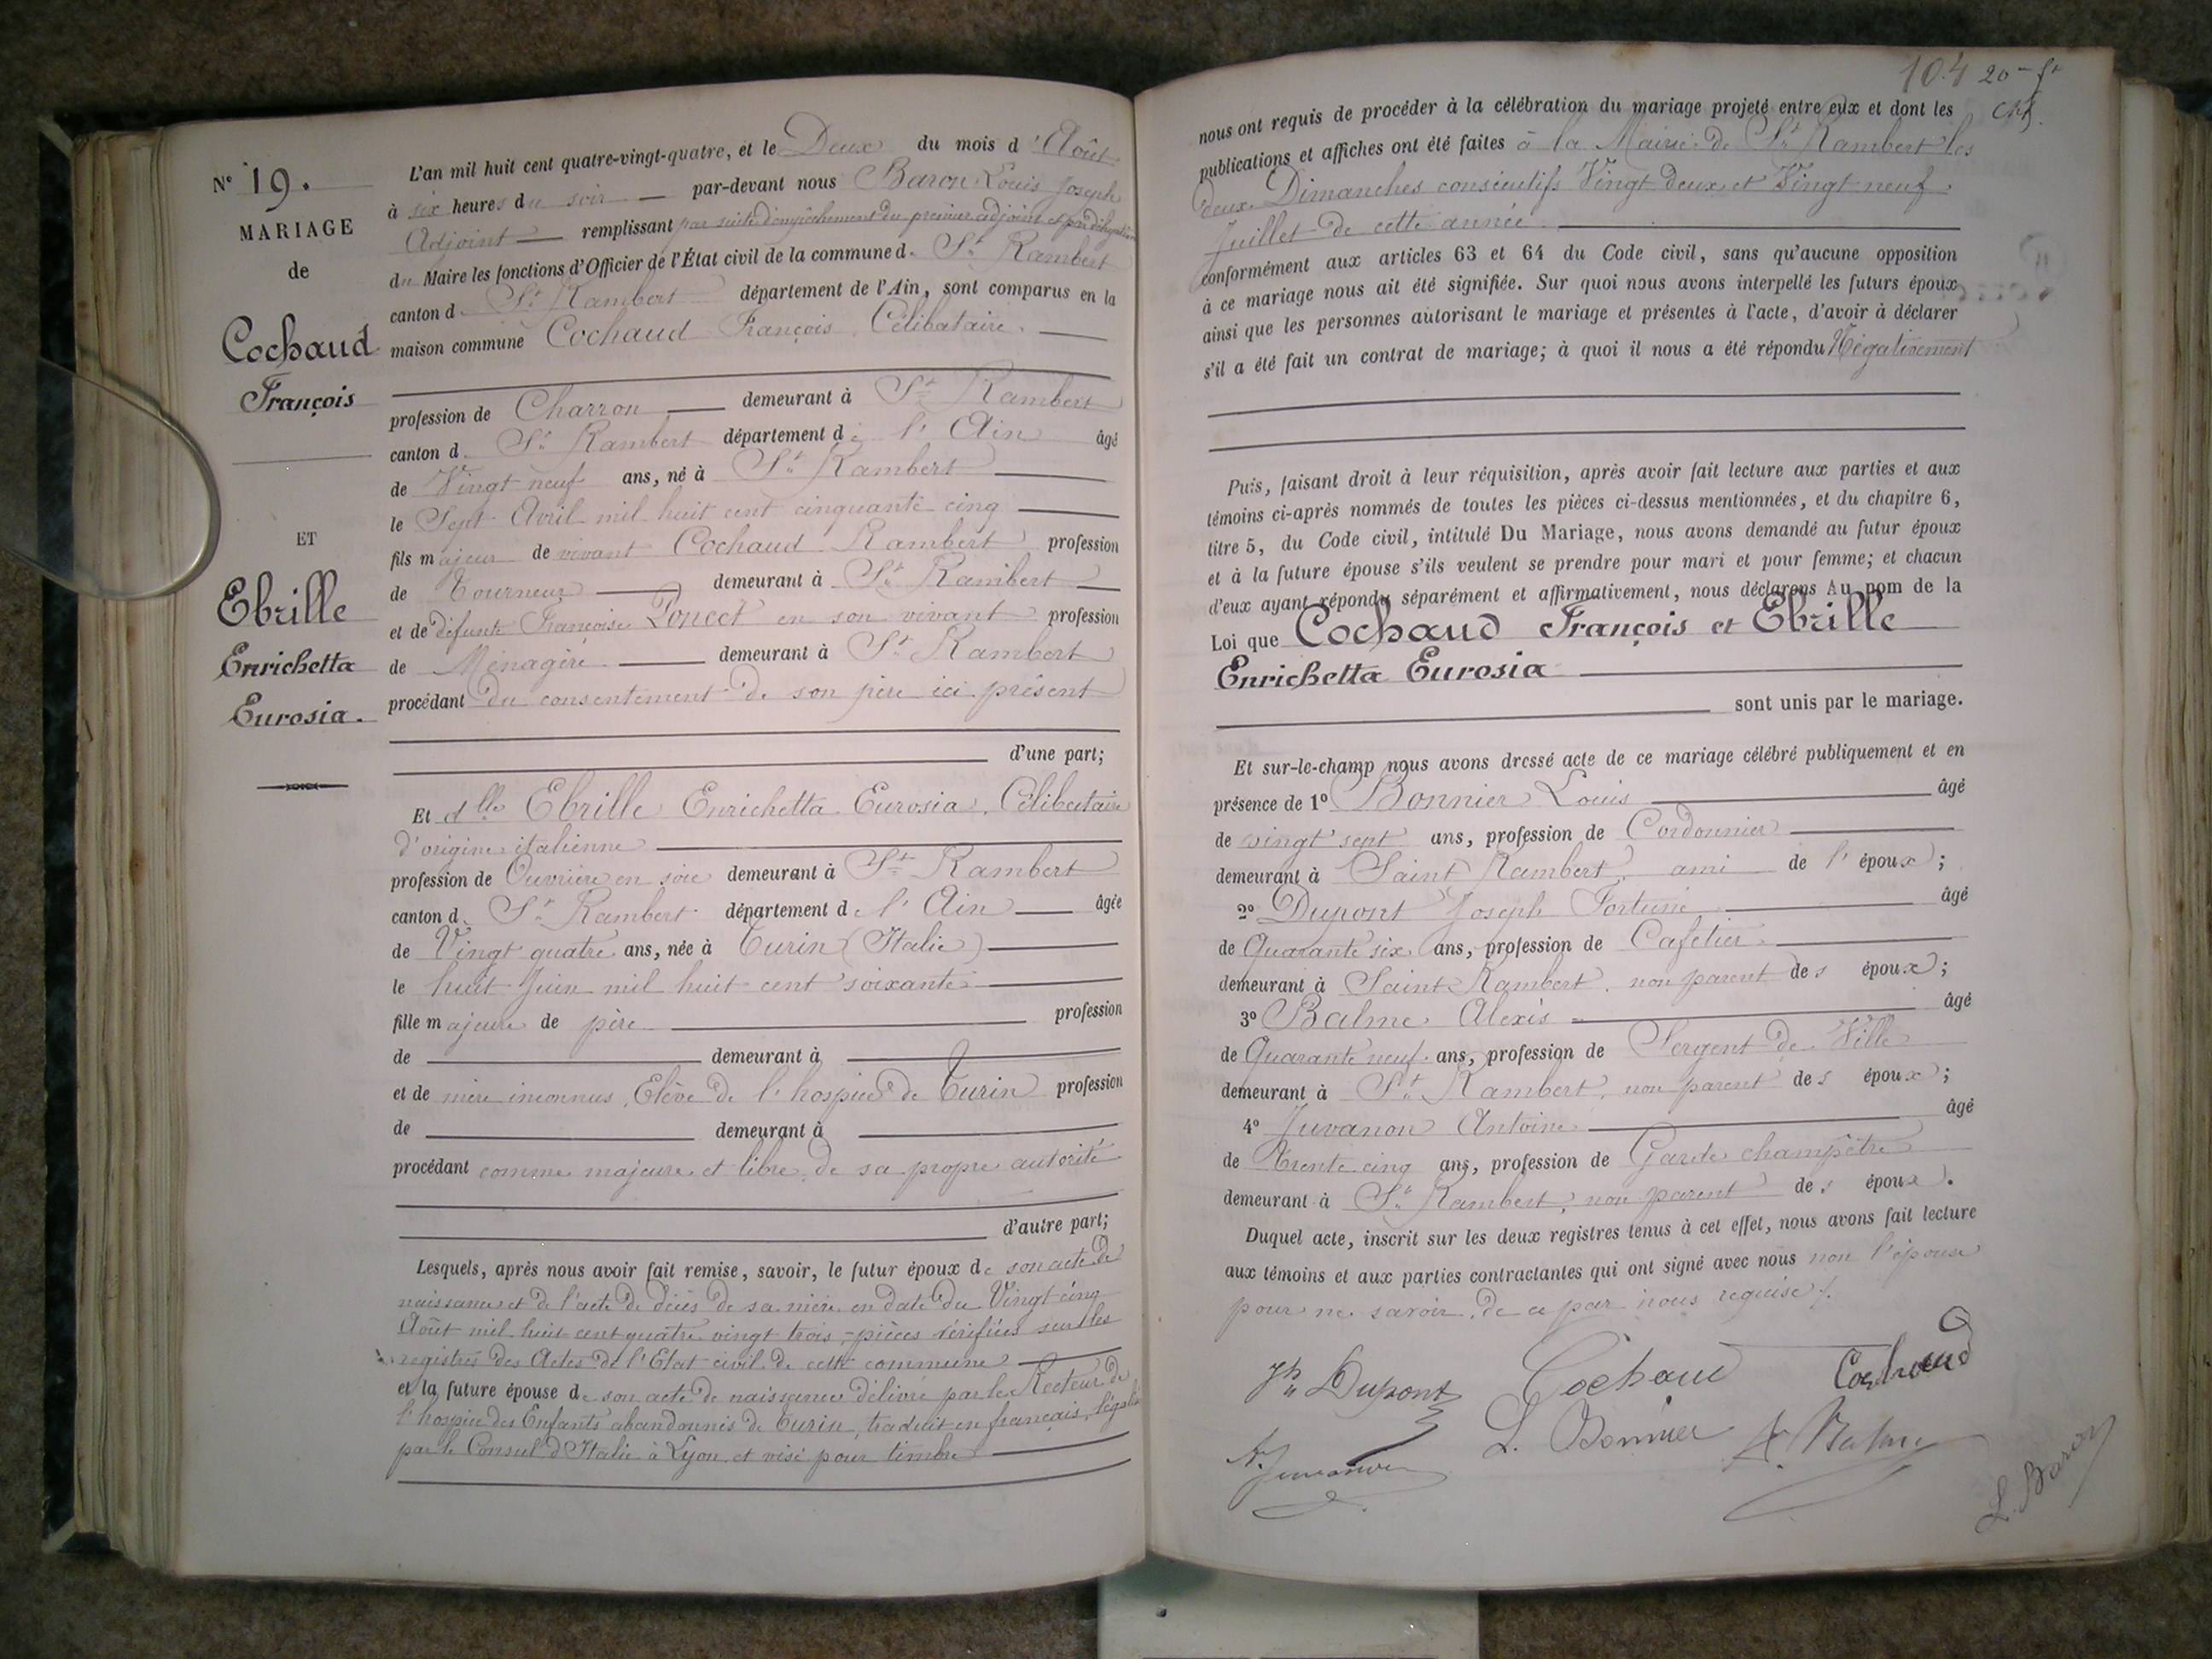 N° 19.
MARIAGE
de
Cochaud
François
ET
Ebrille
Enrichetta
Eurosia.
L'an mil huit cent quatre-vingt-quatre, et le Deux du mois d'Août
à six heures du soir par-devant nous Baron Louis Joseph
Adjoint remplissant par suite d'empêchement du premier adjoint et par délégation
du Maire les fonctions d'Officier de l'État civil de la commune de St Rambert
canton de St Rambert département de l'Ain, sont comparus en la
maison commune Cochaud François, Célibataire.
profession de Charron demeurant à St Rambert
canton de St Rambert département de l'Ain âgé
de Vingt neuf ans, né à St Rambert
le Sept Avril mil huit cent cinquante cinq
fils majeur de vivant Cochaud Rambert profession
de Tourneur demeurant à St Rambert
et de défunte Françoise Poncet en son vivant profession
de Ménagère demeurant à St Rambert
procédant du consentement de son père ici présent
d'une part;
Et dlle Ebrille Enrichetta Eurosia, Célibataire
d'origine italienne
profession de Ouvrière en soie demeurant à St Rambert
canton de St Rambert département de l'Ain âgée
de Vingt quatre ans, née à Turin (Italie)
le huit Juin mil huit cent soixante
fille majeure de père profession
de demeurant à
et de mère inconnus, Elève de l'hospice de Turin profession
de demeurant à
procédant comme majeure et libre de sa propre autorité
d'autre part;
Lesquels, après nous avoir fait remise, savoir, le futur époux de son acte de
naissance et de l'acte de décès de sa mère en date du Vingt cinq
Août mil huit cent quatre vingt trois, pièces vérifiées sur les
registres des Actes de l'Etat civil de cette commune
et la future épouse de son acte de naissance délivré par le Recteur de
l'hospice des Enfants abandonnés de Turin, traduit en français, légalisé
par le Consul d'Italie à Lyon et visé pour timbre
104 20 - ft
nous ont requis de procéder à la célébration du mariage projeté entre eux et dont les
publications et affiches ont été faites à la Mairie de St Rambert les
deux Dimanches consécutifs Vingt deux et Vingt neuf
Juillet de cette année
conformément aux articles 63 et 64 du Code civil, sans qu'aucune opposition
à ce mariage nous ait été signifiée. Sur quoi nous avons interpellé les futurs époux
ainsi que les personnes autorisant le mariage et présentes à l'acte, d'avoir à déclarer
s'il a été fait un contrat de mariage; à quoi il nous a été répondu Négativement
Puis, faisant droit à leur réquisition, après avoir fait lecture aux parties et aux
témoins ci-après nommés de toutes les pièces ci-dessus mentionnées, et du chapitre 6,
titre 5, du Code civil, intitulé Du Mariage, nous avons demandé au futur époux
et à la future épouse s'ils veulent se prendre pour mari et pour femme; et chacun
d'eux ayant répondu séparément et affirmativement, nous déclarons Au nom de la
Loi que Cochaud François et Ebrille
Enrichetta Eurosia
sont unis par le mariage.
Et sur-le-champ nous avons dressé acte de ce mariage célébré publiquement et en
présence de 1° Bonnier Louis âgé
de vingt sept ans, profession de Cordonnier
demeurant à Saint Rambert, ami de l'époux;
2° Dupont Joseph Fortuné âgé
de Quarante six ans, profession de Cafetier
demeurant à Saint Rambert, non parent des époux;
3° Balme Alexis âgé
de Quarante neuf ans, profession de Sergent de Ville
demeurant à St Rambert, non parent des époux;
4° Juvanon Antoine âgé
de Trente cinq ans, profession de Garde champêtre
demeurant à St Rambert, non parent des époux.
Duquel acte, inscrit sur les deux registres tenus à cet effet, nous avons fait lecture
aux témoins et aux parties contractantes qui ont signé avec nous non l'épouse
pour ne savoir, de ce par nous requise.
Jh Dupont Cochaud Cochaud
A. Juvanon L. Bonnier A. Balme
L. Baron